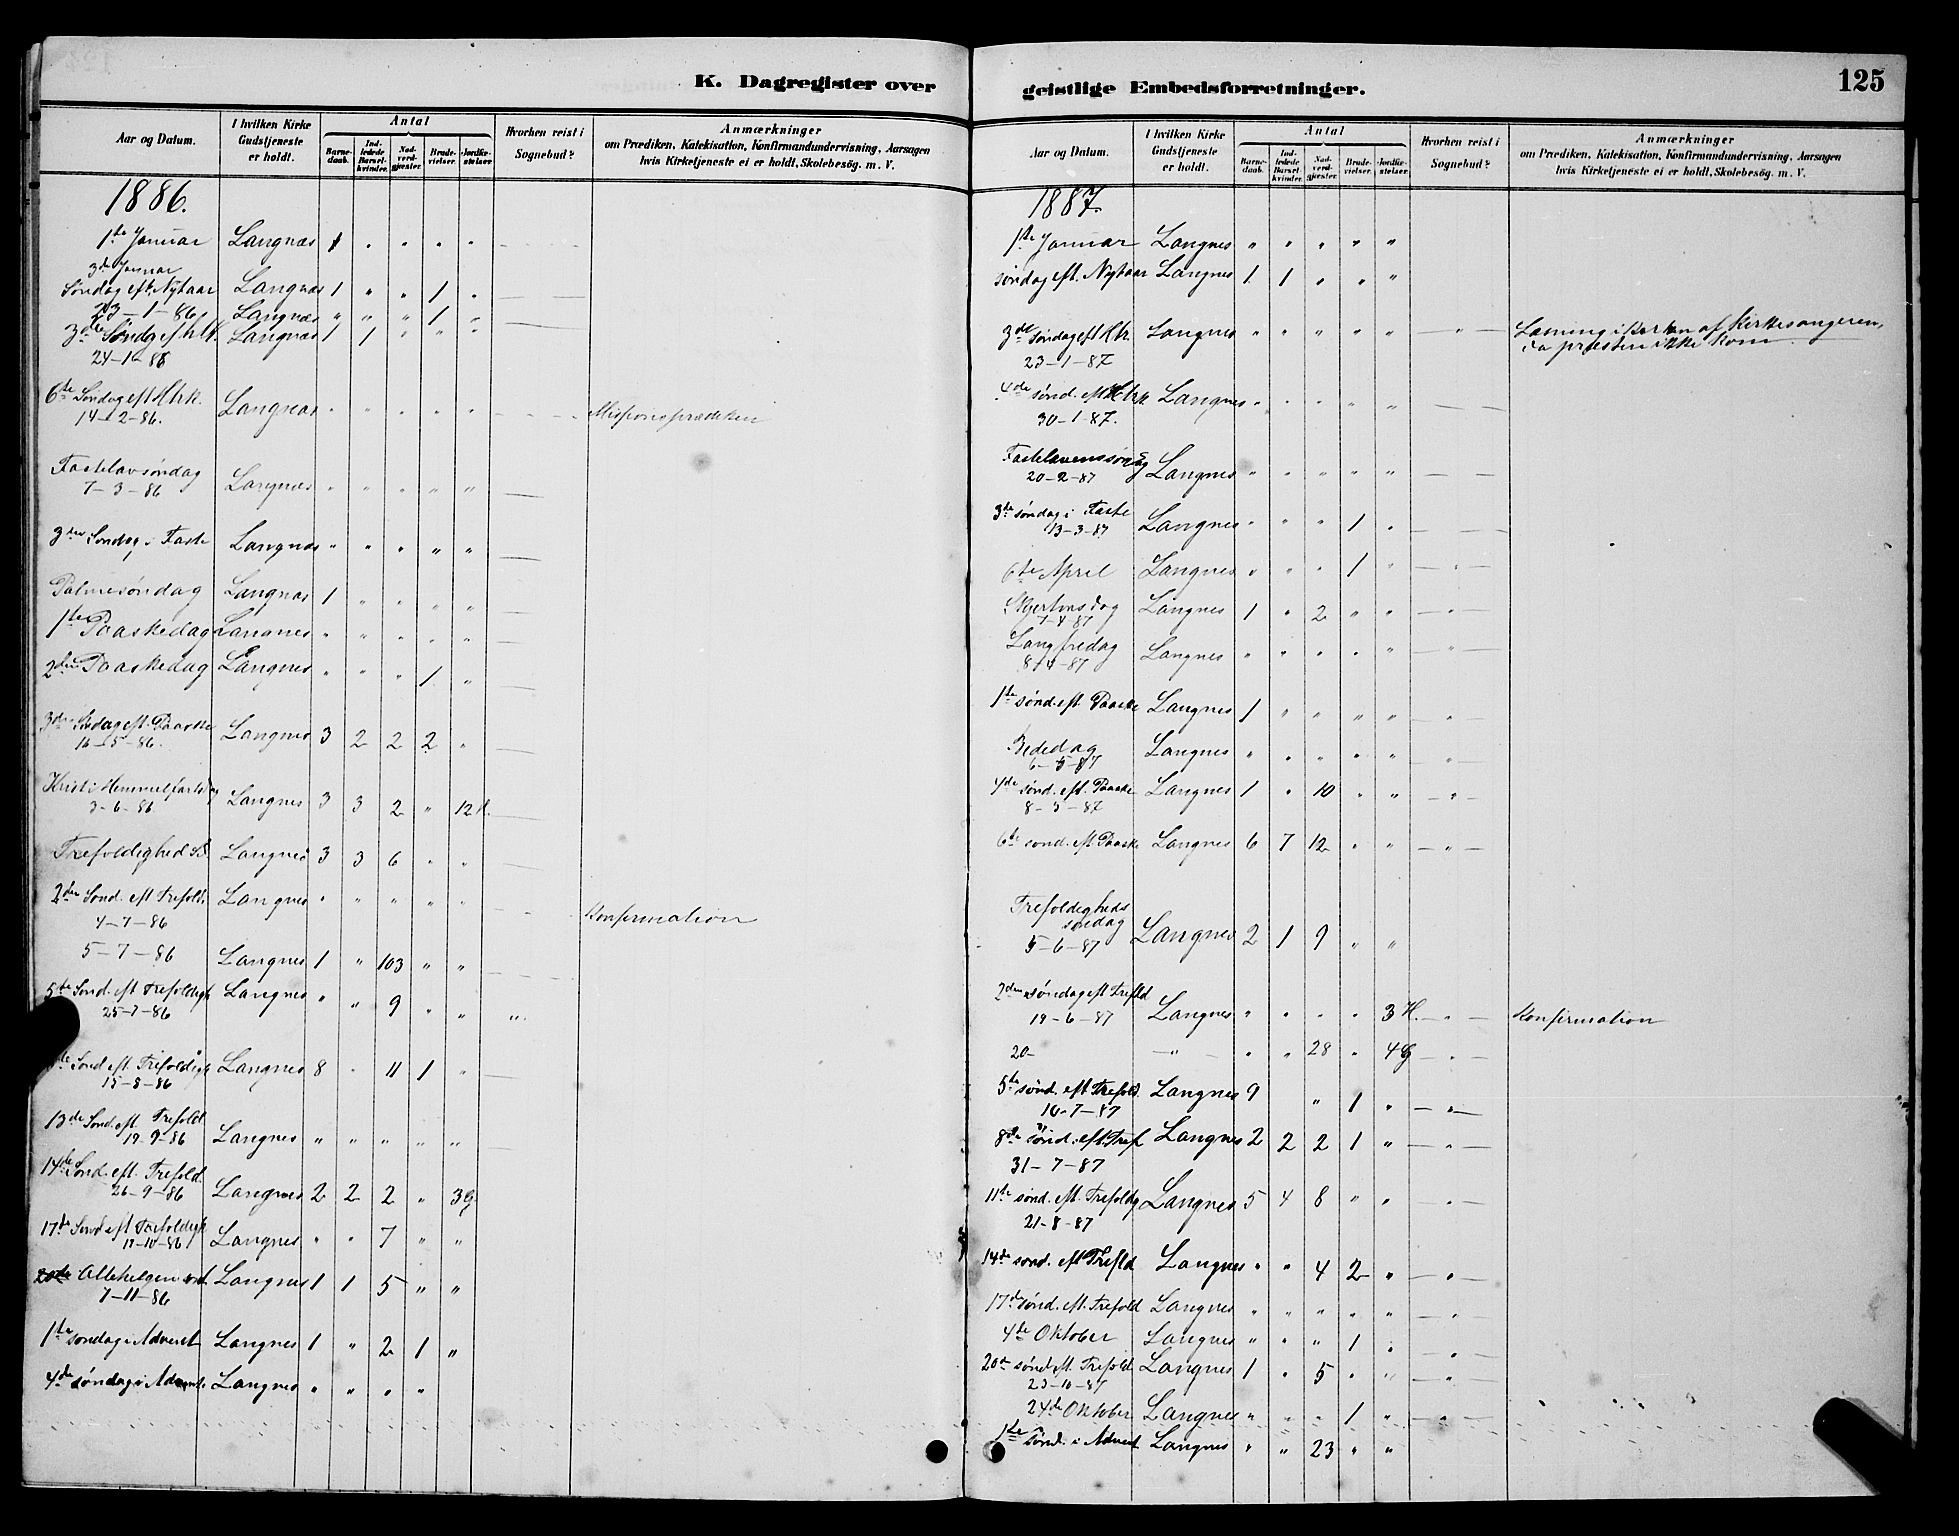 K. Dagregister over
Aar og Datum. I hvilken Kirke Gudstjeneste er holdt. Antal Barne-daab. Ind-ledede Barsel-kvinder. Nad-verd-gjester. Brude-vielser. Jordfæ-stelser. Hvorhen reist i Sognebud? Anmærkninger om Prædiken, Katekisation, Konfirmandundervisning, Aarsagen hvis Kirketjeneste ei er holdt, Skolebesög. m. V.
1886.
1ste Januar Langnæs 1 " " " "
3de Januar
Søndag eft. Nytaar Langnæs 1 " " 1 "
23-1-86 Langnæs " " " 1 "
3die Søndg eft H.h.K. Langnæs 1 1 " " "
24-1-86
6te Søndag eft H.h.k. Langnæs " " " " " Missionsprædiken
14-2-86.
Fastelavsøndag Langnæs " " " " "
7-3-86
3die Søndag i Faste Langnæs " " " " "
Palmesøndag Langnæs 1 " " " "
1ste Paaskedag Langnes " " " " "
2den Paaskedag Langnes " " " 1 "
3die Søndag eft. Paaske Langnes 3 2 2 2 "
16-5-86.
Kristi Hemmelfartsdag Langnes 3 3 2 " 12
3-6-86
Trefoldighed S. Langnes 3 3 6 " "
2den Sønd. eft Trefold. Langnes " " " " " Konfirmation
4-7-86
5-7-86 Langnes 1 " 103 " "
5te Sønd. eft Trefoldigh Langnes " " 9 " " "
25-7-86
Sønd eft. Trefoldigh Langnes 8 " 11 1 "
15-8-86
13de Sønd. eft Trefold Langnes " " " " "
19-9-86
14de Sønd. eft. Trefold. Langnes 2 2 2 " 3 G
26-9-86
17de Sønd eft Trefoldigh Langnes " " 7 " "
17-10-86
20de Allehelgen Langnes 1 1 5 " "
7-11-86
1ste søndag i Advent Langnes 1 " 2 1 "
4de søndag i Advent Langnes " " " "
geistlige Embedsforretninger. 125
Aar og Datum. I hvilken Kirke Gudstjeneste er holdt. Antal Barne-daab. Ind-ledede Barsel-kvinder. Nad-verd-gjester. Brude-vielser. Jordfæ-stelser. Hvorhen reist i Sognebud? Anmærkninger om Prædiken, Katekisation, Konfirmandundervisning, Aarsagen hvis Kirketjeneste ei er holdt, Skolebesög. m. V.
1887.
1ste Januar Langnes " " " " "
søndag eft. Nytaar Langnes 1 1 " " "
3die søndag eft H.h. Langnes " " " " " — " — Læsning i kirken af Kirkesangeren,
23-1-87 da præsten ikke kom.
4de sønd. eft H.h.k Langnes " " " " "
30-1-87.
Fastelavenssøndag Langnes " " " " "
20-2-87
3die søndag i Faste Langnes " " " 1 "
13-3-87
6te April Langnes " " " 1 " — " —
Skjertorsdag Langnes 1 " 2 " " — " —
7-4-87
Langfredag Langnes " " " " " — " —
8-4-87
1ste sønd. eft. Paaske Langnes 1 " " " " — " —
Bededag Langnes " " " " " — " —
6-5-87
4de sønd. eft. Paaske Langnes 1 " 10 " " — " —
8-5-87
6te sønd. eft Paaske Langnes 6 7 12 " " — " —
Trefoldigheds
søndag
5-6-87 Langnes 2 1 9 " "
2den søndag eft Trefld Langnes " " " " 3 H. — " — Konfirmation
19-6-87
20- — " — " " 28 " 4 G — " —
5te sønd. eft Trefold. Langnes 9 " 1 " — " —
10-7-87
8de sønd. eft. Tref Langnes 2 2 2 1 " — " —
31-7-87
11te sønd. eft. Trefoldg Langnes 5 4 8 " " — " —
21-8-87
14de sønd. eft Trefld Langnes " " 4 2 " — " —
17de sønd. eft. Trefold Langnes " " " " " "
4de Oktober Langnes " " " 1 " "
20de sønd eft. Trefold Langnes 1 " 5 " " — " —
23-10-87
24de Oktober Langnes " " " 1 " — " —
1ste sønd. i Advent Langnes " " 23 " "